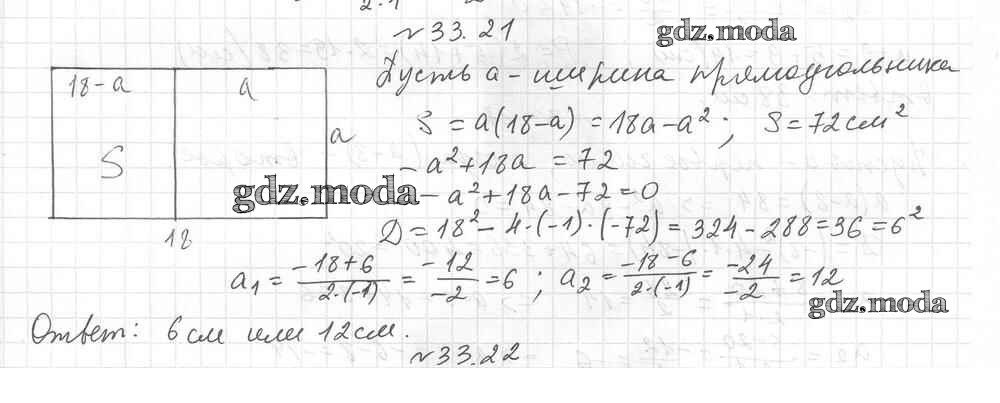 N 33.21
gdz.moda
18-a a
Пусть a - ширина прямоугольника
S = a(18-a) = 18a-a²; S=72см²
a
S
-a²+18a = 72
gdz.moda
-a²+18a-72=0
18
D = 18²- 4·(-1)·(-72) = 324-288=36=6²
a₁ = (-18+6)/(2·(-1)) = (-12)/(-2) =6; a₂ = (-18-6)/(2·(-1)) = (-24)/(-2) = 12
gdz.moda
Ответ: 6 см или 12см.
N 33.22